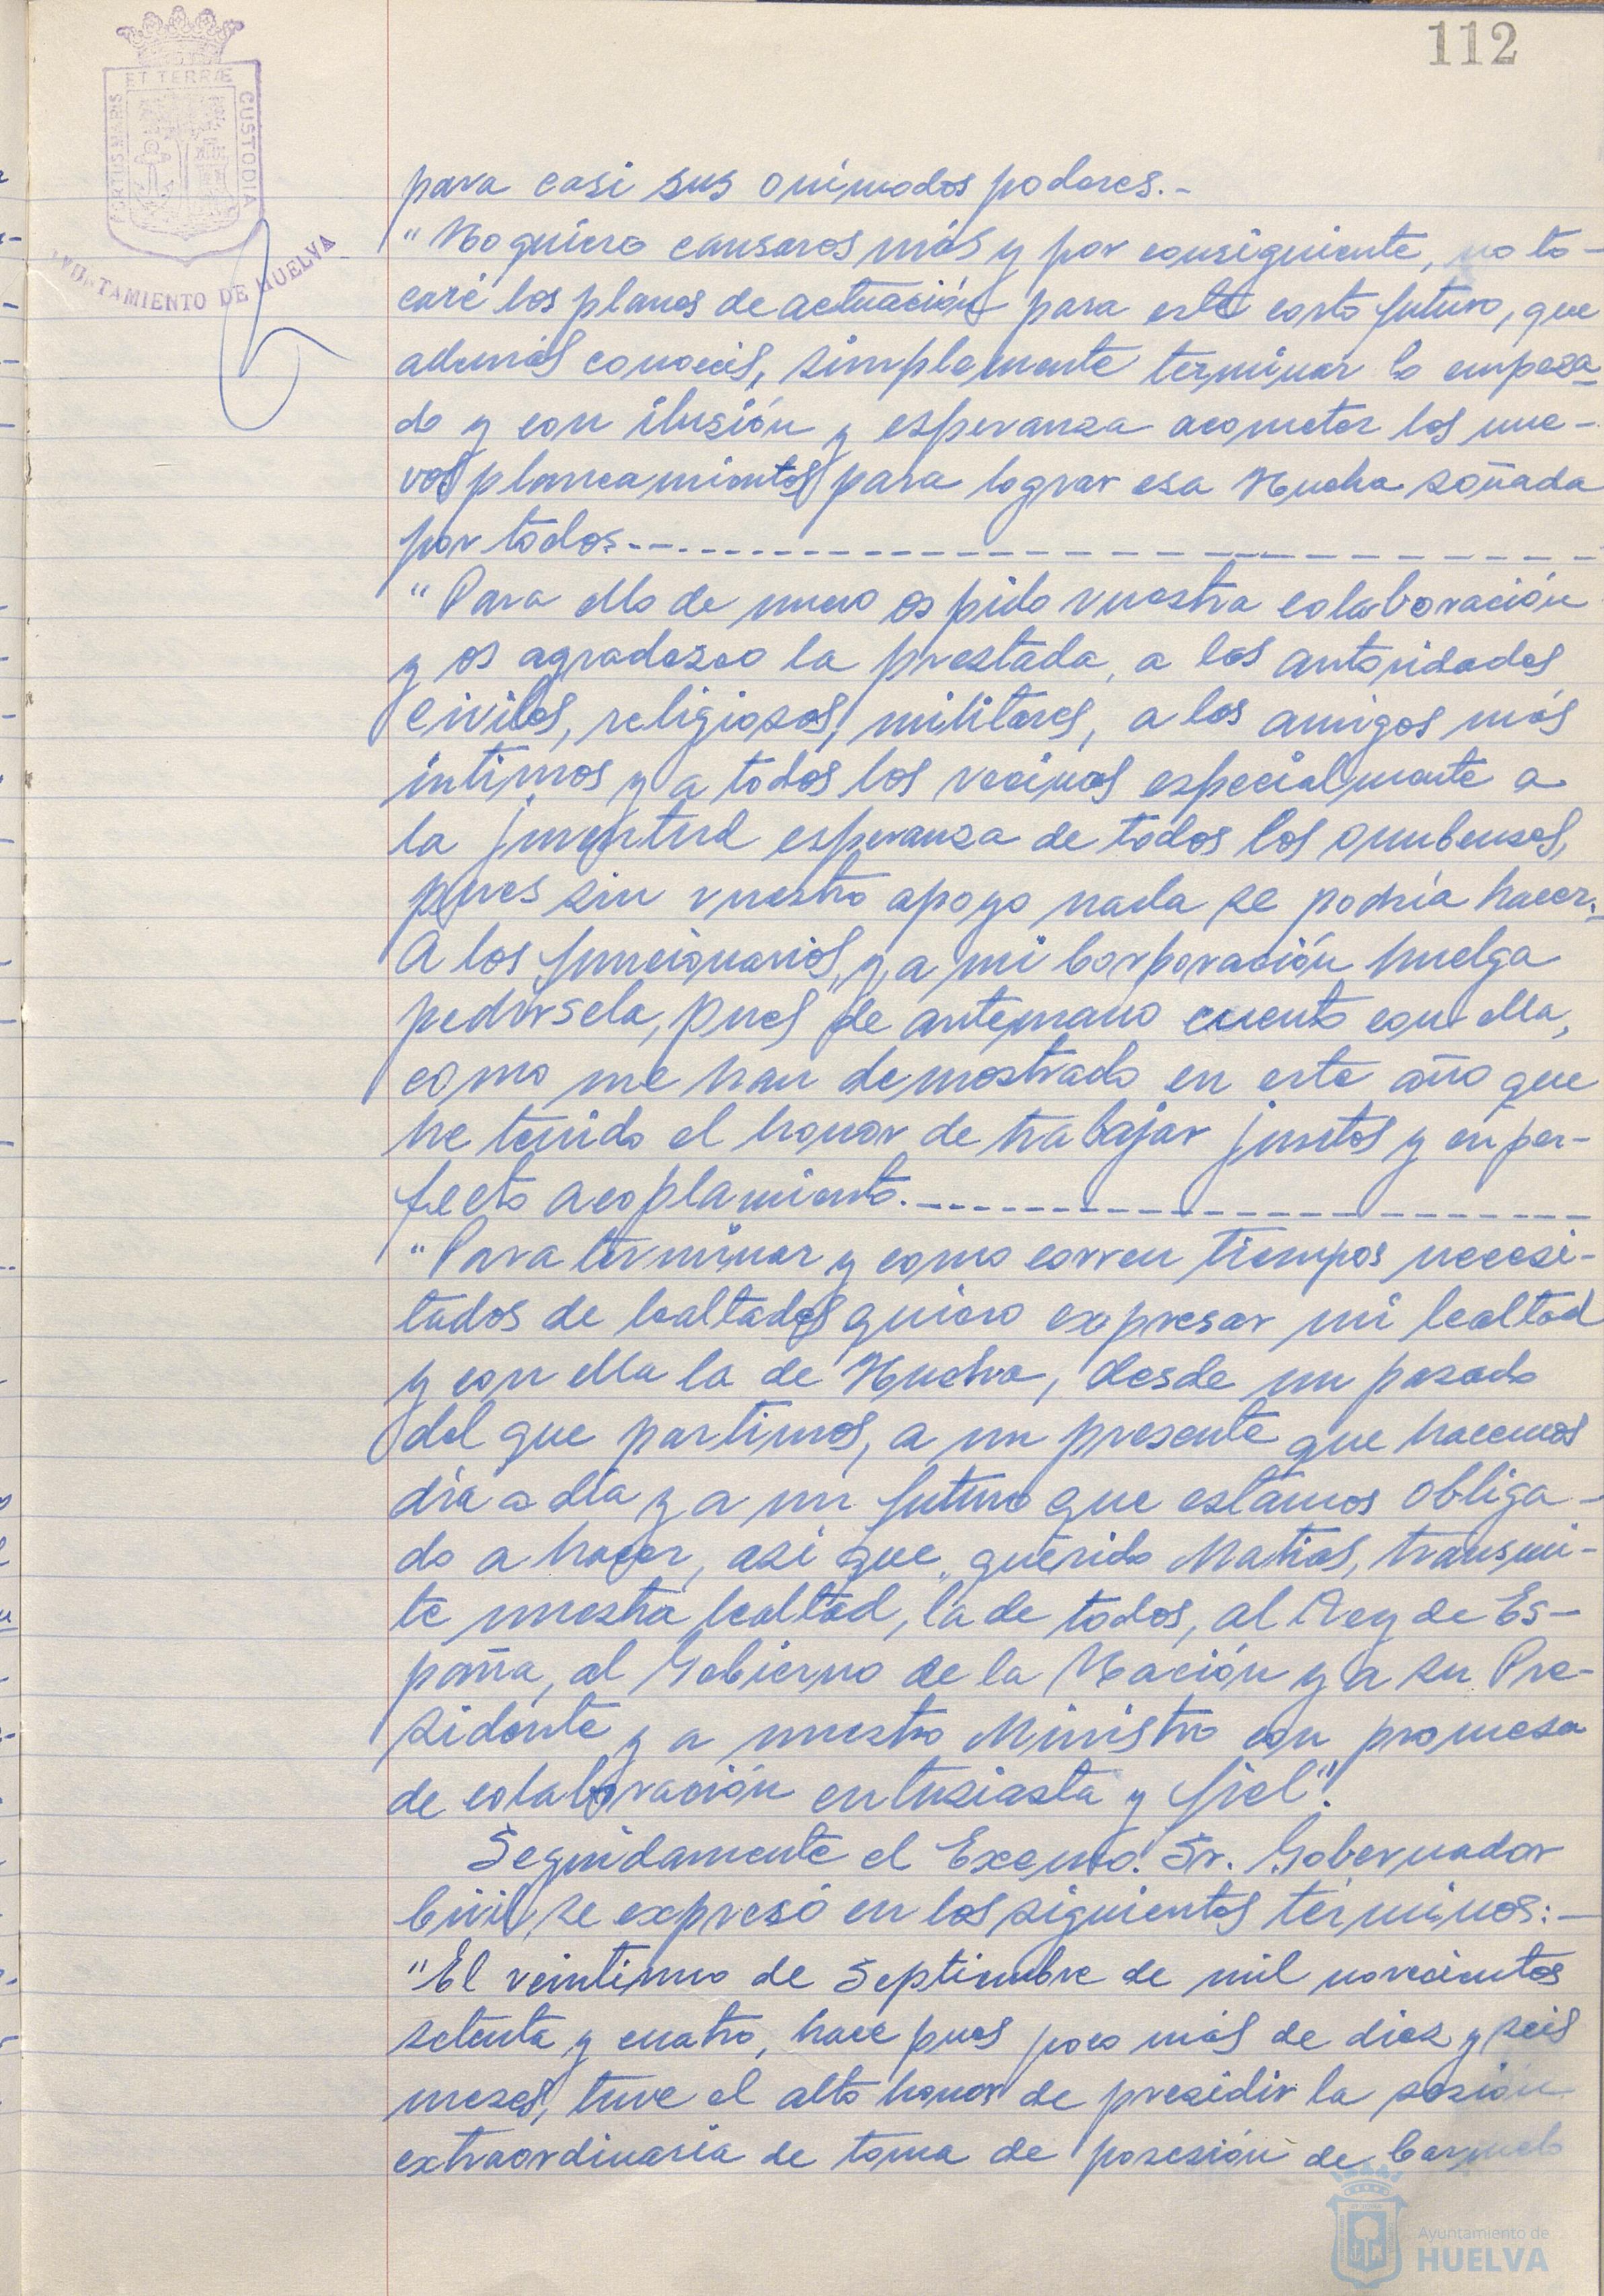 112
PORTUS MARIS
ET TERRÆ
CUSTODIA
AYUNTAMIENTO DE HUELVA
para casi sus onimodos poderes.-
"No quiero cansaros más y por consiguiente, no to-
caré los planes de actuación para este corto futuro, que
además conoceis, simplemente terminar lo empeza-
do y con ilusión y esperanza acometer los nue-
vos planeamientos para lograr esa Huelva soñada
por todos.-----------------------
"Para ello de nuevo os pido vuestra colaboración
y os agradezco la prestada, a las autoridades
civiles, religiosas, militares, a los amigos más
intimos y a todos los vecinos especialmente a
la juventud esperanza de todos los onubenses,
pues sin vuestro apoyo nada se podría hacer.-
A los funcionarios, y a mi Corporación huelga
pedírsela, pues de antemano cuento con ella,
como me han demostrado en este año que
he tenido el honor de trabajar juntos y en per-
fecto acoplamiento.------------------
"Para terminar y como corren tiempos necesi-
tados de lealtades quiero expresar mi lealtad
y con ella la de Huelva, desde un pasado
del que partimos, a un presente que hacemos
día a día y a un futuro que estamos obliga-
do a hacer, asi que, querido Matias, transmi-
te nuestra lealtad, la de todos, al Rey de Es-
paña, al Gobierno de la Nación y a su Pre-
sidente y a nuestro Ministro con promesa
de colaboración entusiasta y fiel".
Seguidamente el Excmo. Sr. Gobernador
Civil, se expresó en los siguientes términos:-
"El veintiuno de Septiembre de mil novecientos
setenta y cuatro, hace pues poco más de diez y seis
meses, tuve el alto honor de presidir la sesión
extraordinaria de toma de posesión de Carmelo
Ayuntamiento de
HUELVA